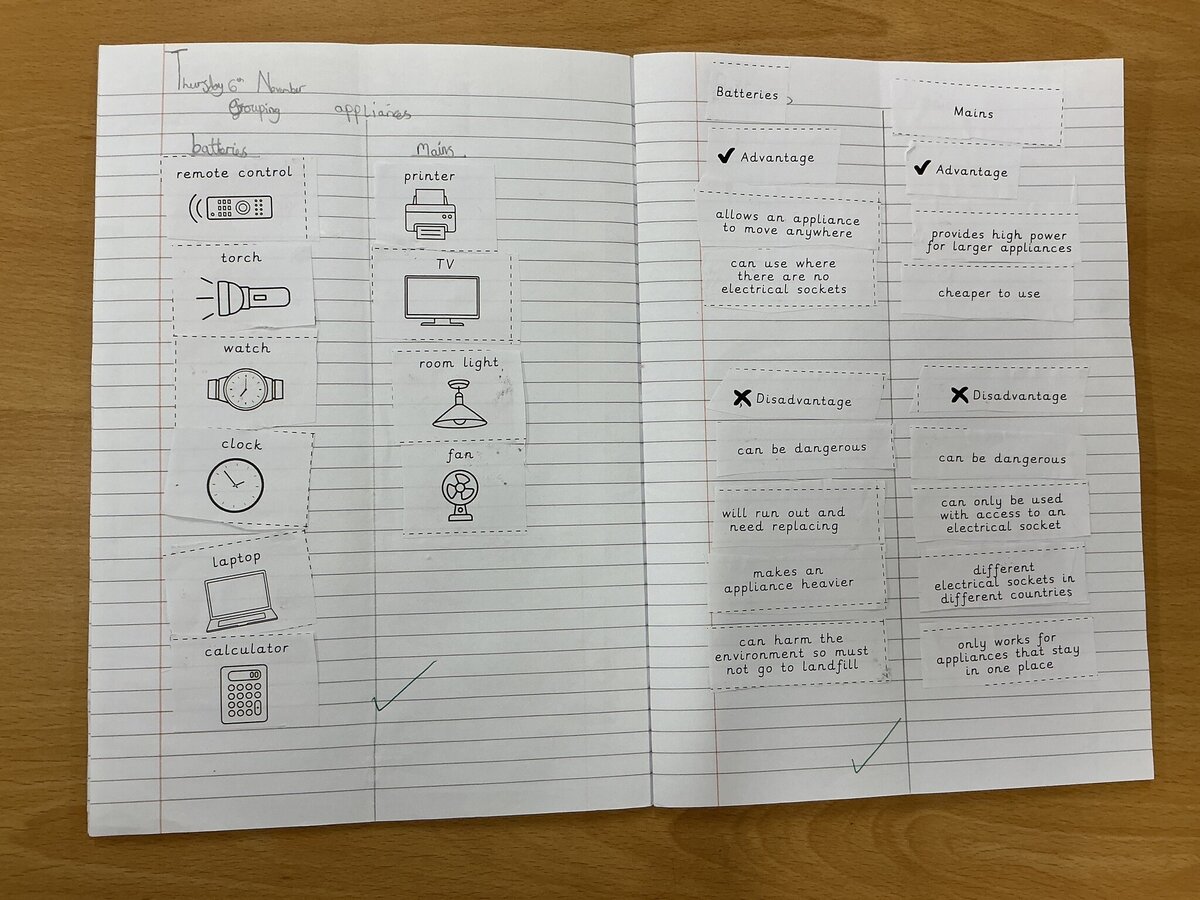 Thursday 6th November
Grouping appliances
batteries
remote control
torch
watch
clock
laptop
calculator
00
Mains
printer
TV
room light
fan
Batteries
✔ Advantage
allows an appliance
to move anywhere
can use where
there are no
electrical sockets
✖ Disadvantage
can be dangerous
will run out and
need replacing
makes an
appliance heavier
can harm the
environment so must
not go to landfill
Mains
✔ Advantage
provides high power
for larger appliances
cheaper to use
✖ Disadvantage
can be dangerous
can only be used
with access to an
electrical socket
different
electrical sockets in
different countries
only works for
appliances that stay
in one place